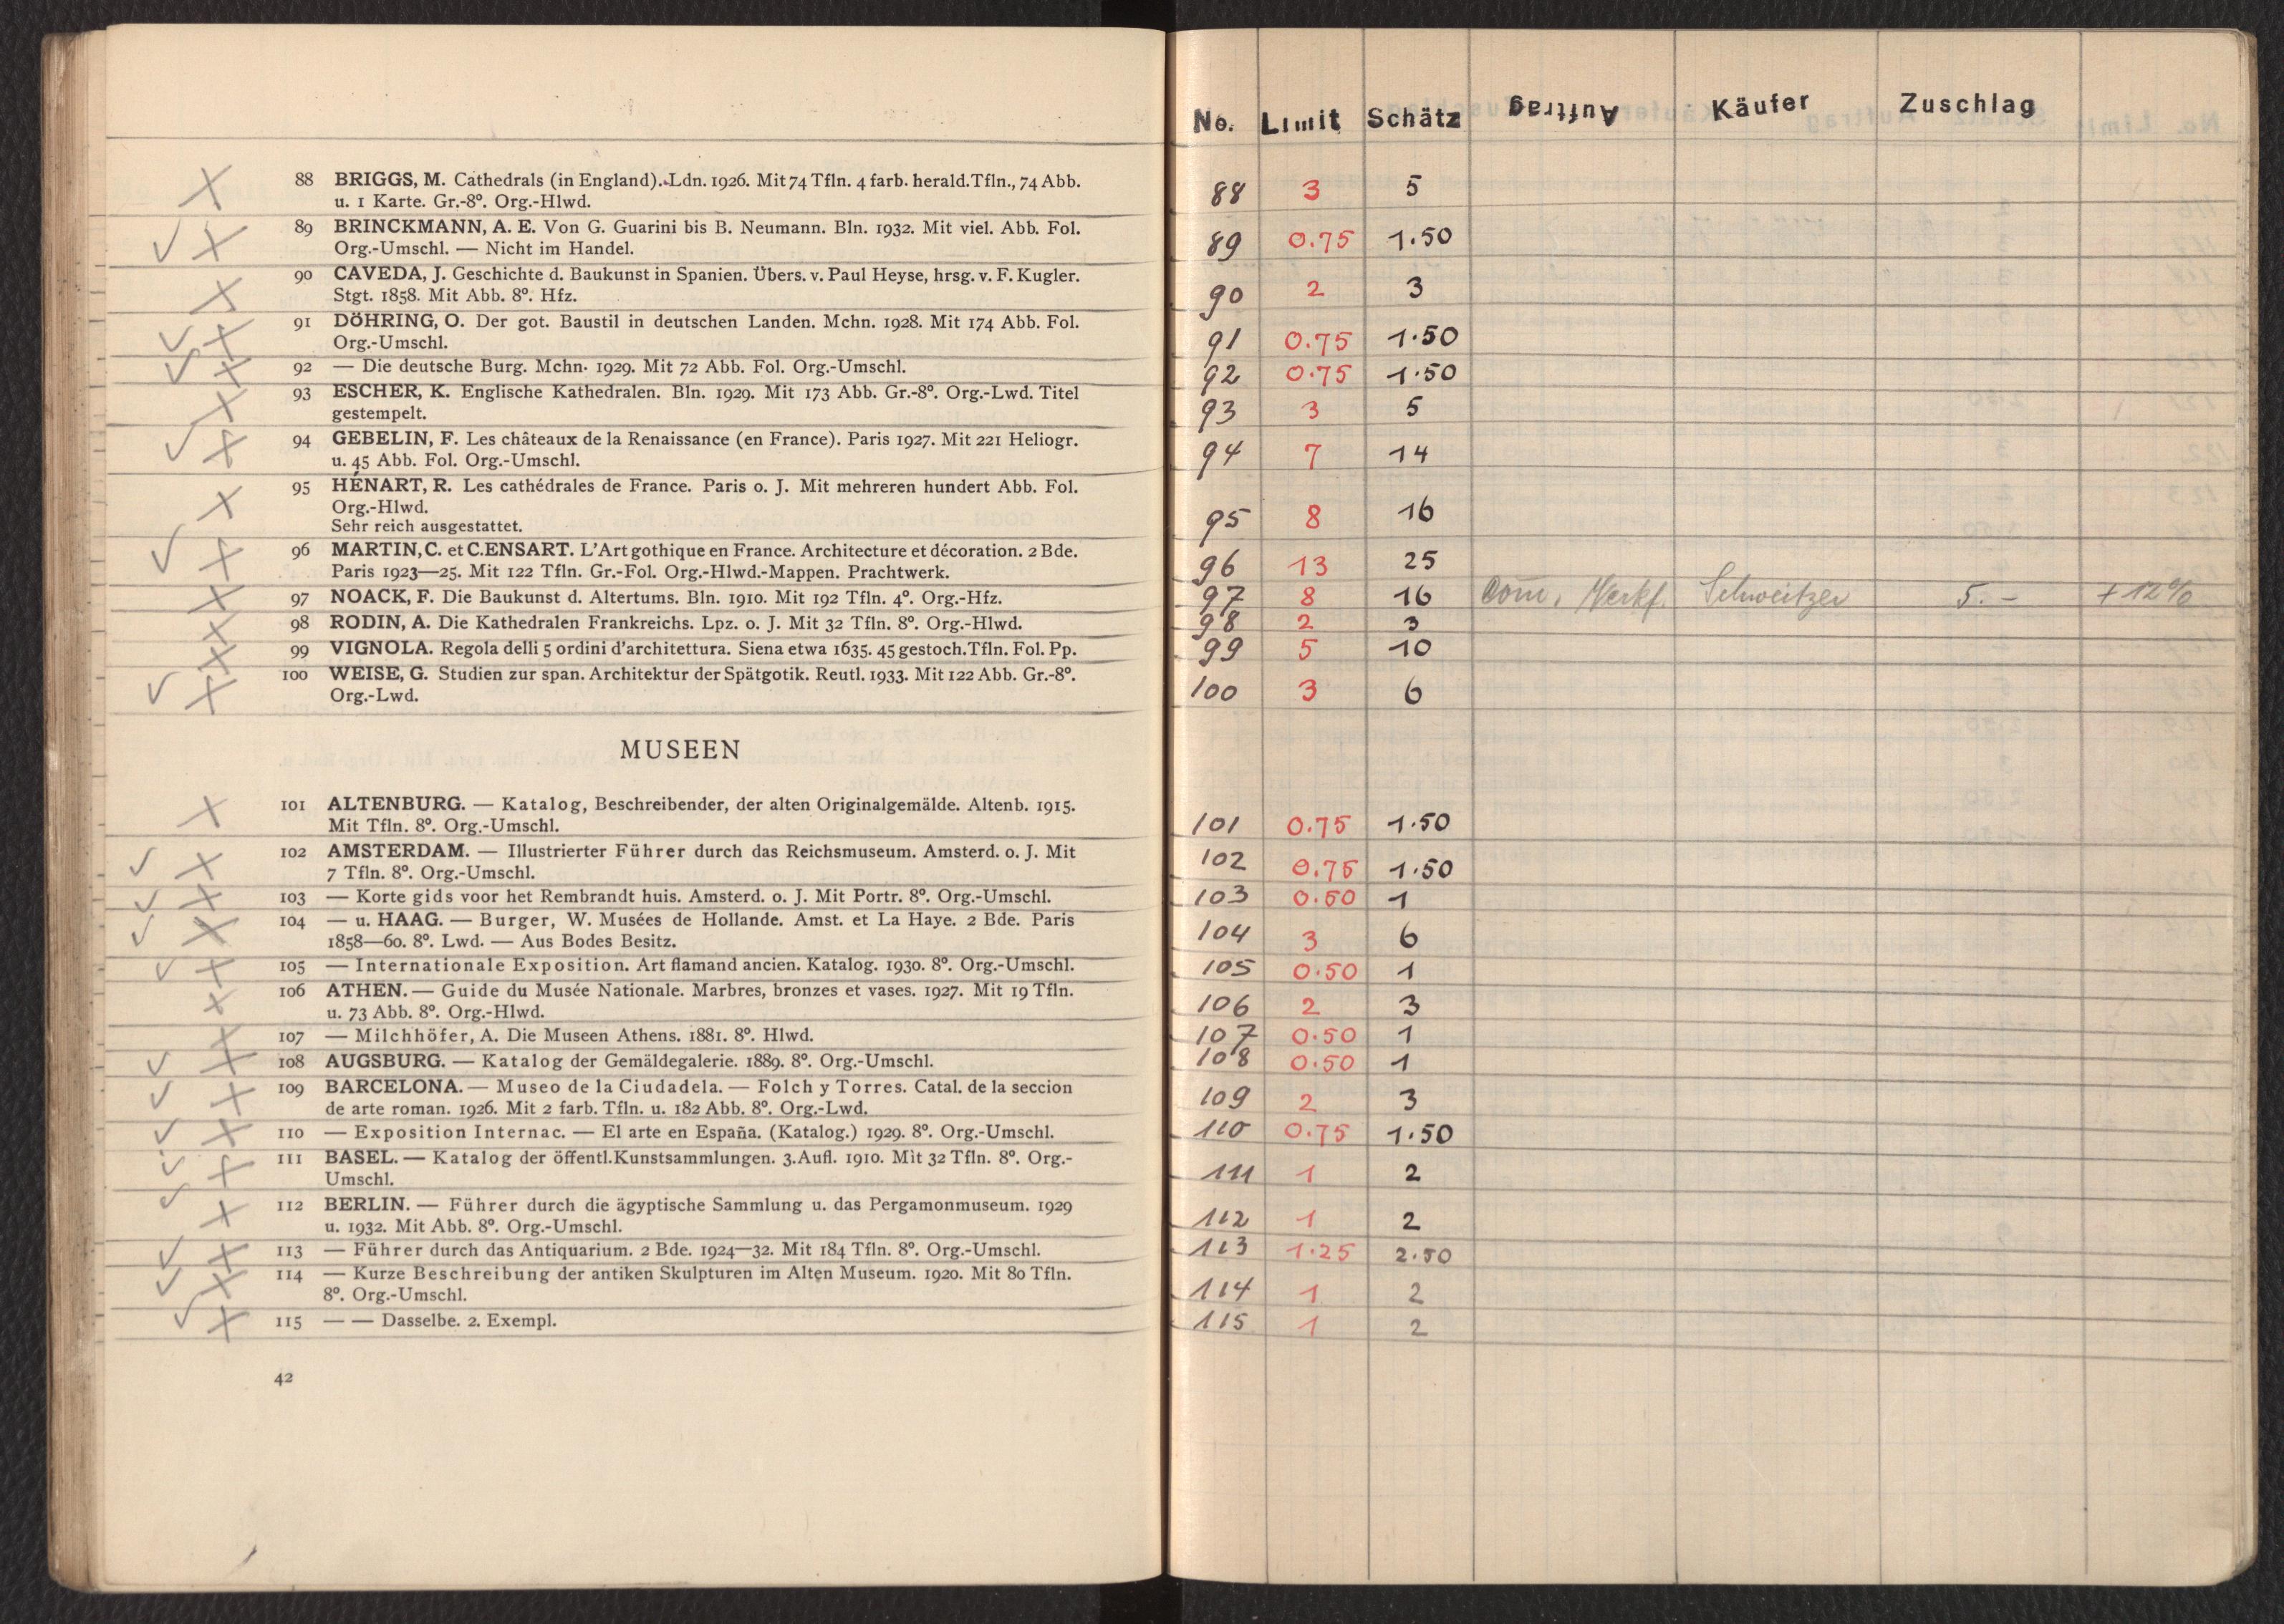 88 BRIGGS, M. Cathedrals (in England). Ldn. 1926. Mit 74 Tfln. 4 farb. herald. Tfln., 74 Abb.
u. 1 Karte. Gr.-8º. Org.-Hlwd.
89 BRINCKMANN, A. E. Von G. Guarini bis B. Neumann. Bln. 1932. Mit viel. Abb. Fol.
Org.-Umschl. — Nicht im Handel.
90 CAVEDA, J. Geschichte d. Baukunst in Spanien. Übers. v. Paul Heyse, hrsg. v. F. Kugler.
Stgt. 1858. Mit Abb. 8º. Hfz.
91 DÖHRING, O. Der got. Baustil in deutschen Landen. Mchn. 1928. Mit 174 Abb. Fol.
Org.-Umschl.
92 — Die deutsche Burg. Mchn. 1929. Mit 72 Abb. Fol. Org.-Umschl.
93 ESCHER, K. Englische Kathedralen. Bln. 1929. Mit 173 Abb. Gr.-8º. Org.-Lwd. Titel
gestempelt.
94 GEBELIN, F. Les châteaux de la Renaissance (en France). Paris 1927. Mit 221 Heliogr.
u. 45 Abb. Fol. Org.-Umschl.
95 HÉNART, R. Les cathédrales de France. Paris o. J. Mit mehreren hundert Abb. Fol.
Org.-Hlwd.
Sehr reich ausgestattet.
96 MARTIN, C. et C.ENSART. L'Art gothique en France. Architecture et décoration. 2 Bde.
Paris 1923—25. Mit 122 Tfln. Gr.-Fol. Org.-Hlwd.-Mappen. Prachtwerk.
97 NOACK, F. Die Baukunst d. Altertums. Bln. 1910. Mit 192 Tfln. 4º. Org.-Hfz.
98 RODIN, A. Die Kathedralen Frankreichs. Lpz. o. J. Mit 32 Tfln. 8º. Org.-Hlwd.
99 VIGNOLA. Regola delli 5 ordini d'architettura. Siena etwa 1635. 45 gestoch. Tfln. Fol. Pp.
100 WEISE, G. Studien zur span. Architektur der Spätgotik. Reutl. 1933. Mit 122 Abb. Gr.-8º.
Org.-Lwd.
MUSEEN
101 ALTENBURG. — Katalog, Beschreibender, der alten Originalgemälde. Altenb. 1915.
Mit Tfln. 8º. Org.-Umschl.
102 AMSTERDAM. — Illustrierter Führer durch das Reichsmuseum. Amsterd. o. J. Mit
7 Tfln. 8º. Org.-Umschl.
103 — Korte gids voor het Rembrandt huis. Amsterd. o. J. Mit Portr. 8º. Org.-Umschl.
104 — u. HAAG. — Burger, W. Musées de Hollande. Amst. et La Haye. 2 Bde. Paris
1858—60. 8º. Lwd. — Aus Bodes Besitz.
105 — Internationale Exposition. Art flamand ancien. Katalog. 1930. 8º. Org.-Umschl.
106 ATHEN. — Guide du Musée Nationale. Marbres, bronzes et vases. 1927. Mit 19 Tfln.
u. 73 Abb. 8º. Org.-Hlwd.
107 — Milchhöfer, A. Die Museen Athens. 1881. 8º. Hlwd.
108 AUGSBURG. — Katalog der Gemäldegalerie. 1889. 8º. Org.-Umschl.
109 BARCELONA. — Museo de la Ciudadela. — Folch y Torres. Catal. de la seccion
de arte roman. 1926. Mit 2 farb. Tfln. u. 182 Abb. 8º. Org.-Lwd.
110 — Exposition Internac. — El arte en España. (Katalog.) 1929. 8º. Org.-Umschl.
111 BASEL. — Katalog der öffentl. Kunstsammlungen. 3. Aufl. 1910. Mit 32 Tfln. 8º. Org.-
Umschl.
112 BERLIN. — Führer durch die ägyptische Sammlung u. das Pergamonmuseum. 1929
u. 1932. Mit Abb. 8º. Org.-Umschl.
113 — Führer durch das Antiquarium. 2 Bde. 1924—32. Mit 184 Tfln. 8º. Org.-Umschl.
114 — Kurze Beschreibung der antiken Skulpturen im Alten Museum. 1920. Mit 80 Tfln.
8º. Org.-Umschl.
115 — — Dasselbe. 2. Exempl.
42
No. Limit Schätz Auftrag Käufer Zuschlag
88 3 5
89 0.75 1.50
90 2 3
91 0.75 1.50
92 0.75 1.50
93 3 5
94 7 14
95 8 16
96 13 25
97 8 16 Com. Schweitzer 5.- + 12%
98 2 3
99 5 10
100 3 6
101 0.75 1.50
102 0.75 1.50
103 0.50 1
104 3 6
105 0.50 1
106 2 3
107 0.50 1
108 0.50 1
109 2 3
110 0.75 1.50
111 1 2
112 1 2
113 1.25 2.50
114 1 2
115 1 2